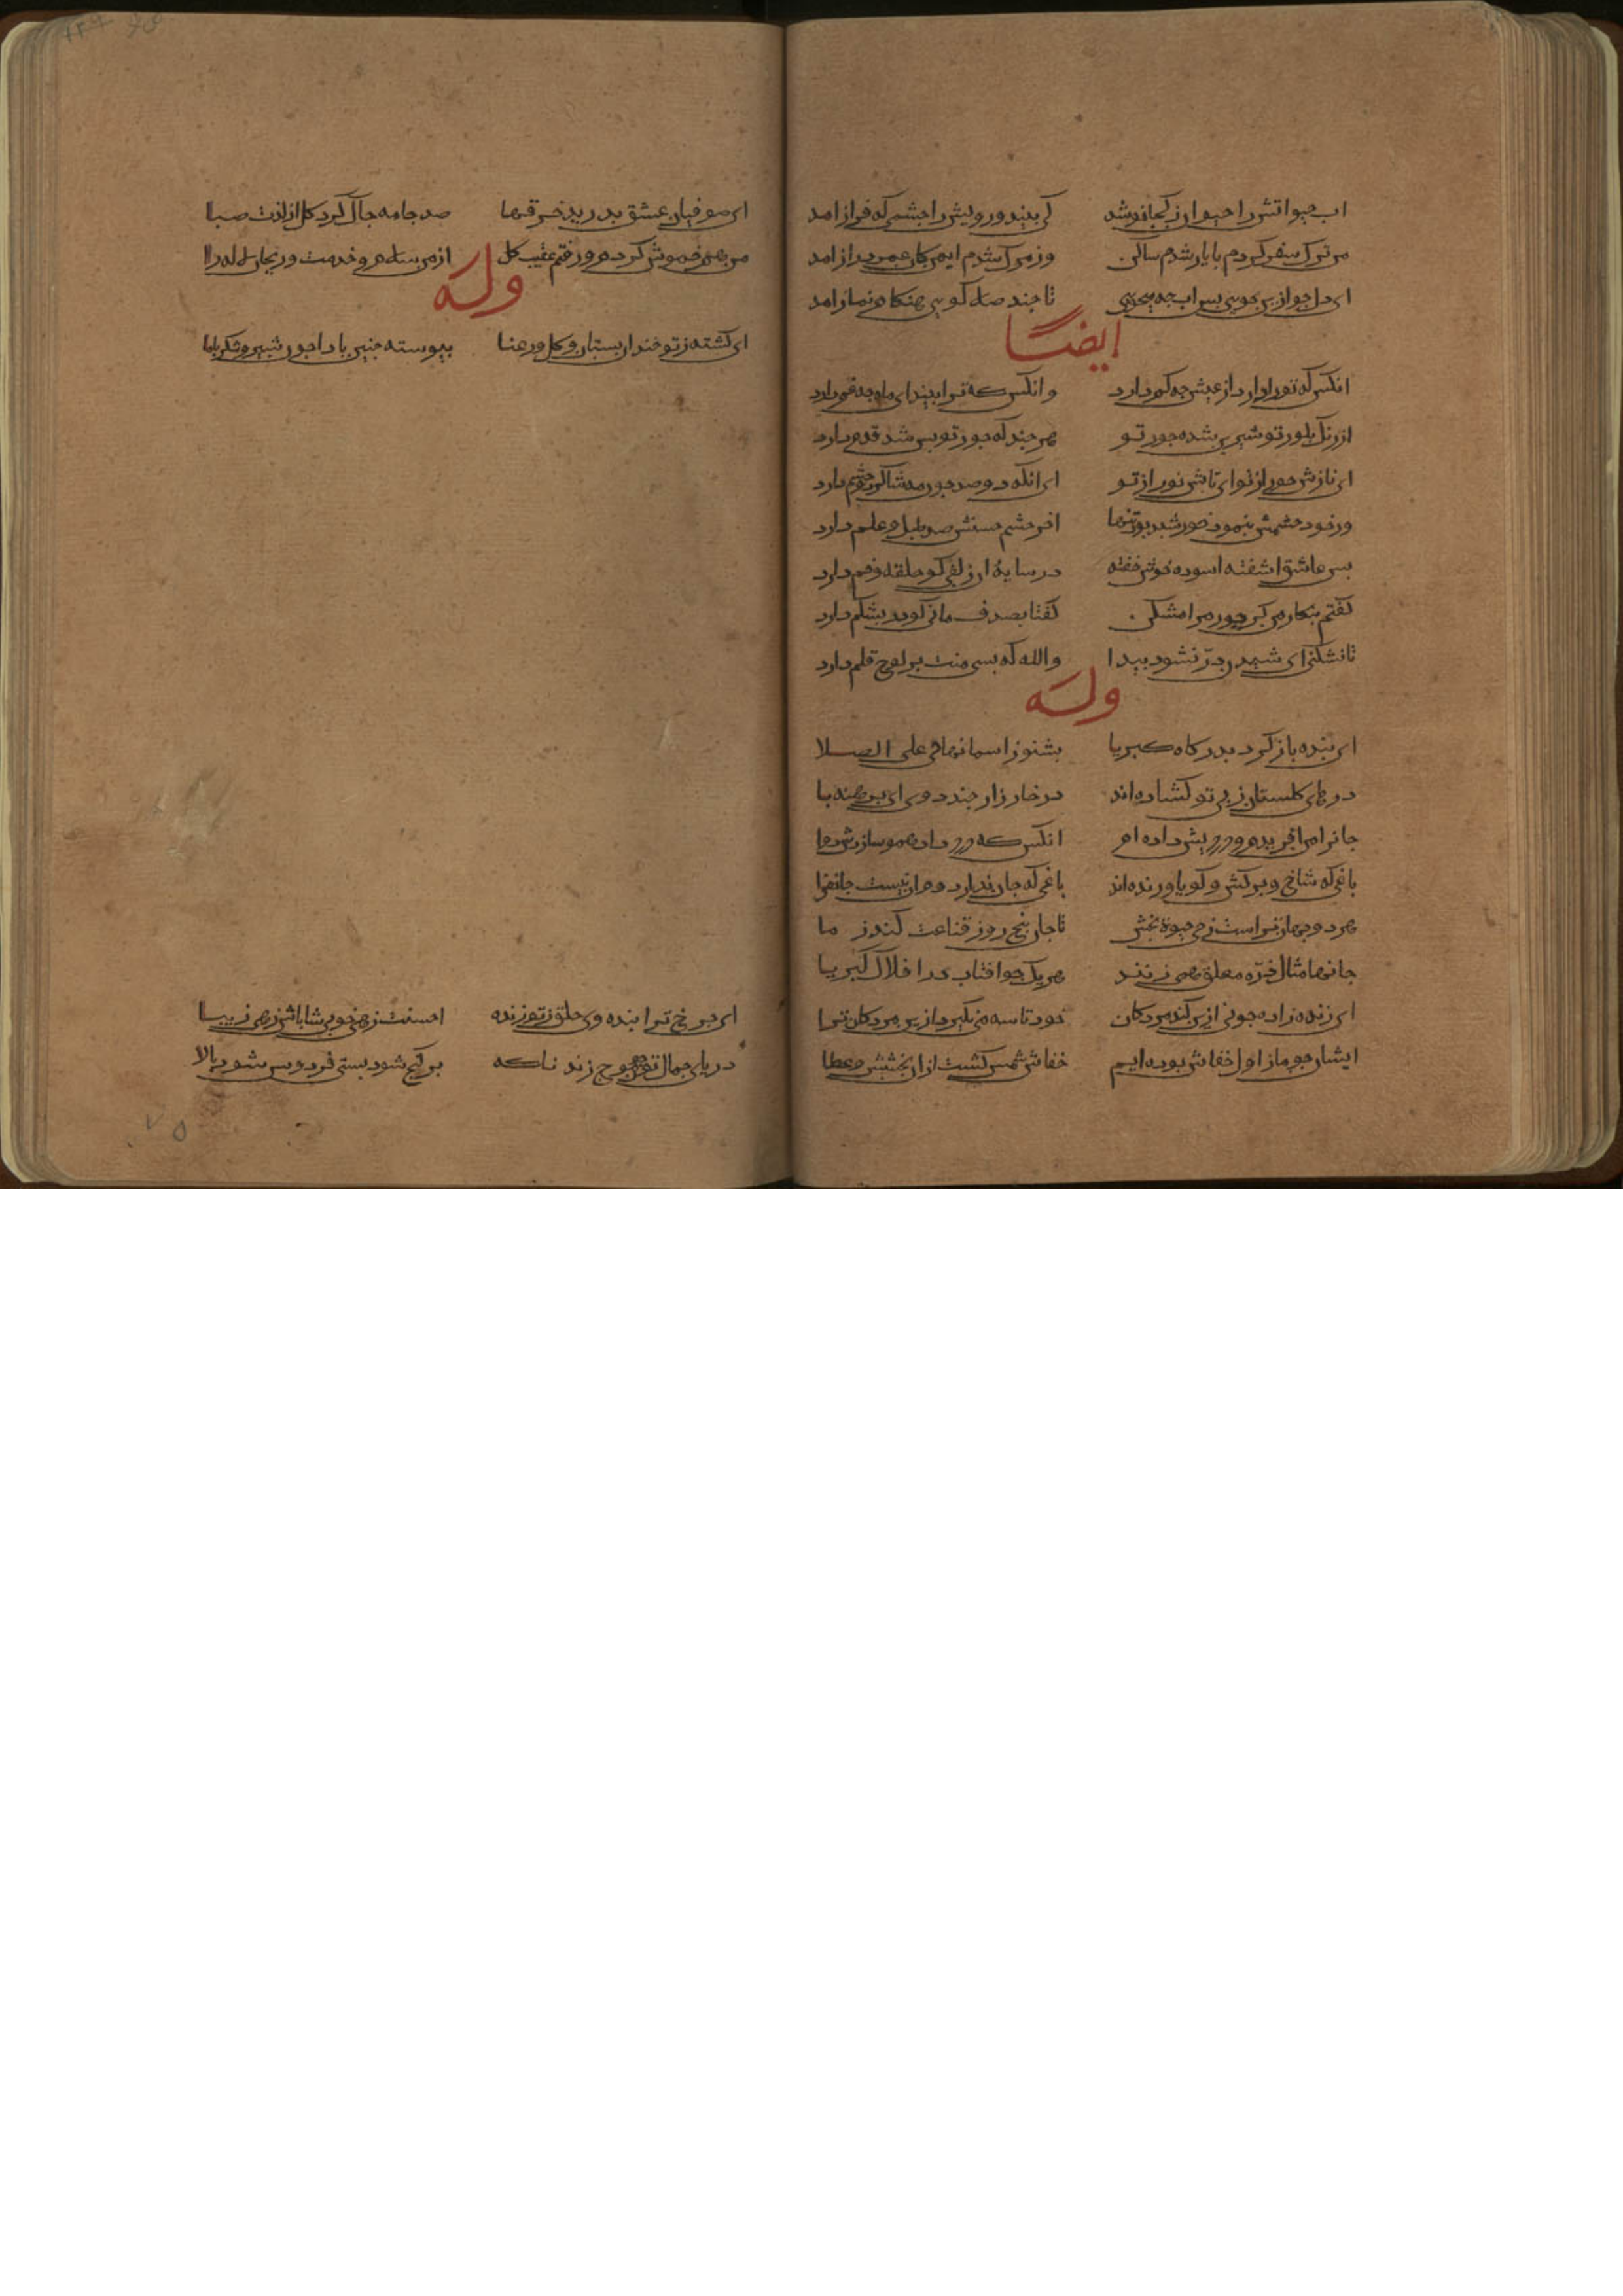 اب حیوانش را حیوان ز کجا نوشد کی بیند رویش را چشمی که فراز امد
من ترک سفر کردم با یار شدم ساکن وز مرک شدم ایمن کان عمر دراز امد
ای دل چو ازین جویی پس اب چه میجویی تا چند صلا کویی هنکام نماز امد
ایضا
انکس که تو را دارد از عیش چه کم دارد وانکس که ترا بیند ای ماه چه غم دارد
از رنک بلور تو شیرین شده جور تو هر چند که جور تو بس تند قدم دارد
ای نازش حور از تو ای تابش نور از تو ای انکه دو صد چون مه شاکرد و حشم دارد
ور خود حشمش نبود خورشید بود تنها اخر حشم حسنش صد طبل و علم دارد
بس عاشق اشفته اسوده خوش خفته در سایهٔ ان زلفی کو حلقه و خم دارد
کفتم بنکار من کز جور مرا مشکن کفتا بصدف مانی کو در بشکم دارد
تا نشکنی ای شیدا ان در نشود پیدا والله که بسی منت بر لوح قلم دارد
وله
ای بنده باز کرد بدرکاه کبریا بشنو ز اسمانها حی علی الصلا
درهای کلستان ز پی تو کشاده اند در خارزار چند دوی ای برهنه پا
جانرا من افریدم و دردیش داده ام انکس که درد داد همو سازدش دوا
باغی که شاخ و برکش و کویا و زنده اند باغی که جان ندارد و ان نیست جانفزا
هر دو جهان تراست ز حی حیوة بخش تا جان پنج روز قناعت کند ز ما
جانها مثال ذره معلق همی زنند هر یک چو افتاب در افلاک کبریا
ای زنده زاده چونی از کند مردکان خود تاسه می نکیرد ازین مردکان ترا
ایشان چو ما ز اول خفاش بوده ایم خفاش شمس کشت ازان بخشش و عطا
ای صوفیان عشق بدرید خرقها صد جامه چاک کرد کل از لذت صبا
من هم خموش کردم و رفتم عقیب کل از من سلام و خدمت ریحان و لاله را
وله
ای کشته ز تو خندان بستان و کل و رعنا پیوسته چنین بادا چون شیر و شکر با ما
ای چرخ ترا بنده وی خلق ز تو زنده احسنت زهی خوبی شاباش زهی زیبا
دریای جمال تو چون موج زند ناکه پر کنج شود پستی فردوس شود بالا
۷۵